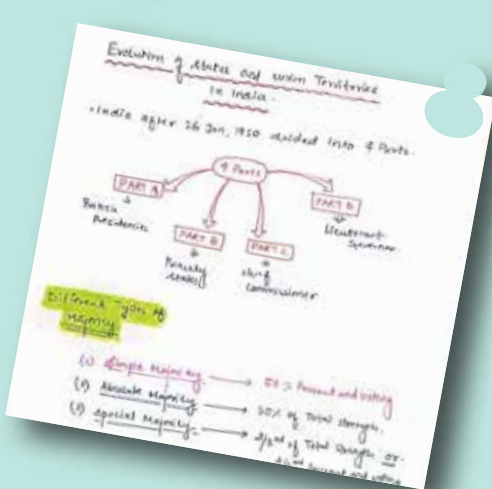 Evolution of states and union Territories
in India.
India after 26 Jan, 1950 divided into 4 Parts.
4 Parts
PART A
PART B
PART C
PART D
British
Presidencies
Princely
States
chief
commissioner
Lieutenant
Governor
Different Types of
Majority
(1) Simple Majority → 50% Present and voting
(2) Absolute Majority → 50% of Total strength.
(3) Special Majority → 2/3rd of Total Strength or
Present and voting